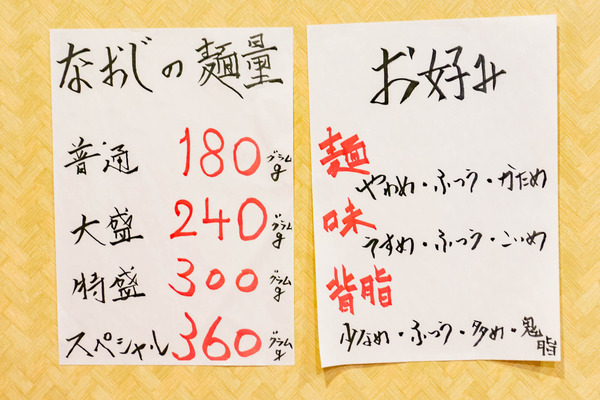 なおじの麺量
普通 180グラムg
大盛 240グラムg
特盛 300グラムg
スペシャル 360グラムg
お好み
麺
やわめ・ふつう・かため
味
うすめ・ふつう・こいめ
背脂
少なめ・ふつう・多め・鬼脂